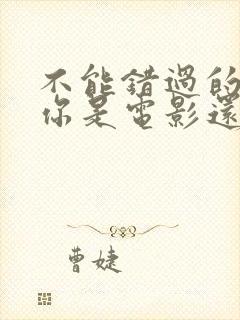 不能錯過的
你是電影還
曹婕